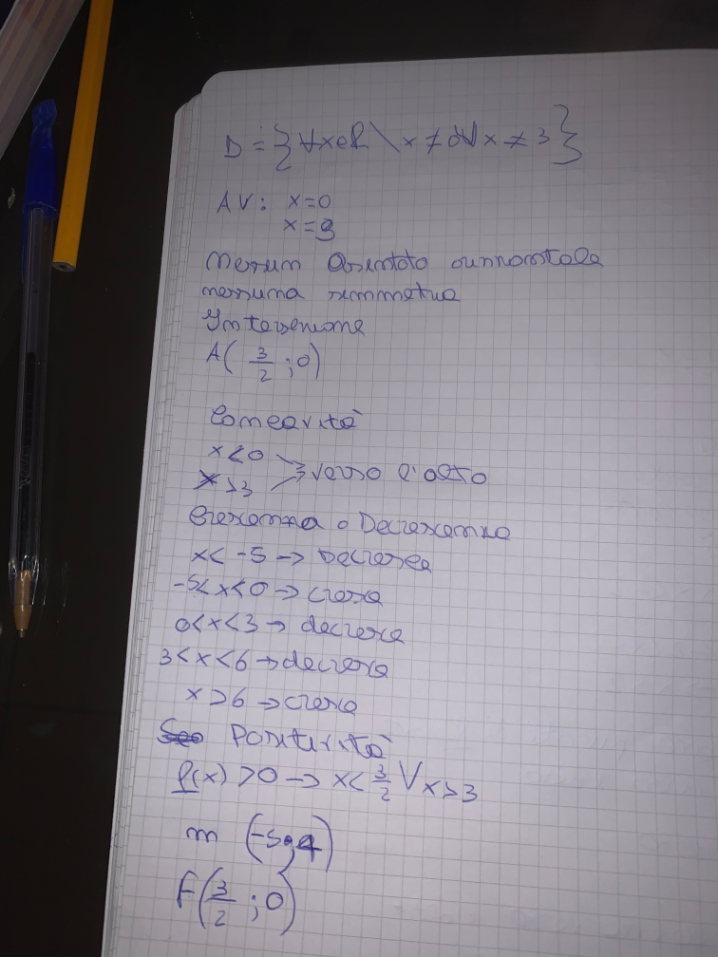 D = {∀x∈R \ x≠0 V x≠3}
AV: x=0
x=3
Nessun Asintoto orizzontale
nessuna simmetria
Intersezione
A( 3/2 ; 0)
Concavità
x<0
x>3 → verso l'alto
Crescenza o Decrescenza
x< -5 → Decresce
-5<x<0 → cresce
0<x<3 → decresce
3<x<6 → decresce
x>6 → cresce
Positività
f(x) >0 → x< 3/2 V x>3
m (-5;4)
F( 3/2 ; 0)